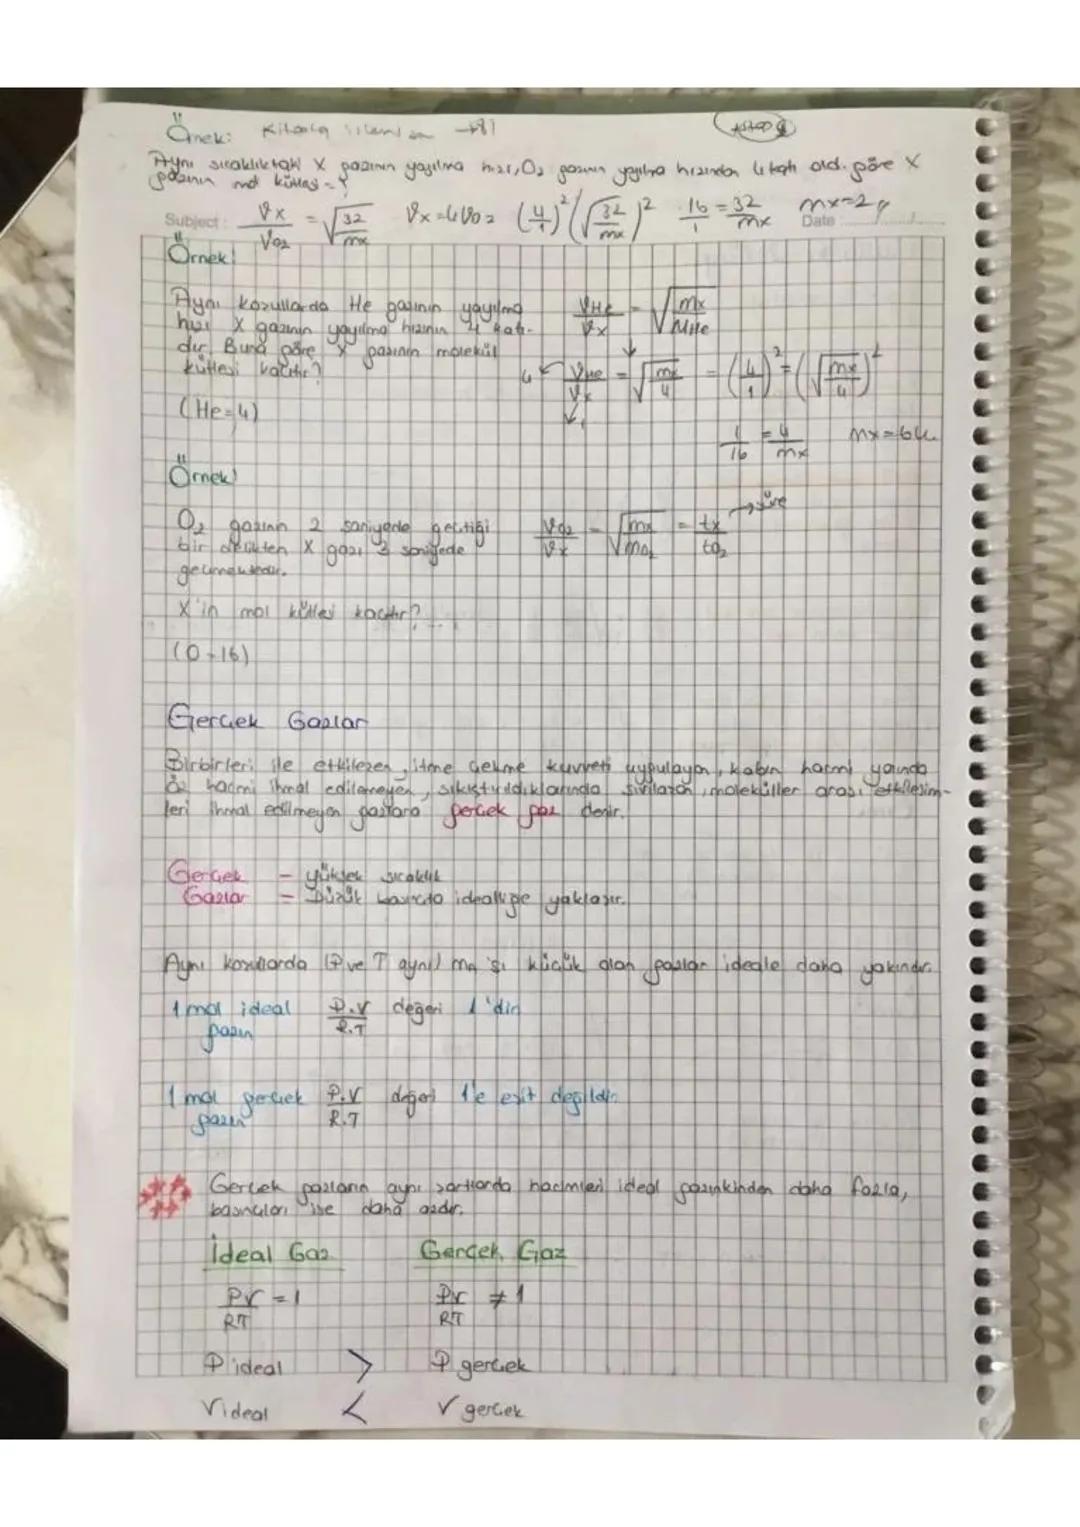 Örnek:
Aynı sıcaklıktaki X gazının yayılma hızı, O₂ gazının yayılma hızından 4 katı old. göre X
gazının mol kütlesi = ?
Subject: Vx/Vo₂ = √32/mx Vx=4VO₂ (4/1)² (√32/mx)² 16/1 = 32/mx mx=2g
Date
Örnek!
Aynı koşullarda He gazının yayılma
hızı X gazının yayılma hızının 4 katı-
dır. Buna göre X gazının molekül
kütlesi kaçtır?
(He=4)
VHe/Vx = √mx/MHe
4 VHe/Vx = √mx/4 = (4/1)² = (√mx/4)²
1
1/16 = 4/mx mx=64
Örnek!
O₂ gazının 2 saniyede geçtiği
bir delikten X gazı 3 saniyede
geçmektedir.
X'in mol kütlesi kaçtır?
(O=16)
VO₂/Vx = √mx/mO₂ = tx/tO₂ → süre
Gerçek Gazlar
Birbirleri ile etkileşen, itme çekme kuvveti uygulayan, kabın hacmi yanında
öz hacmi ihmal edilemeyen, sıkıştırıldıklarında sıvılaşan, moleküller arası etkileşim-
leri ihmal edilmeyen gazlara gerçek gaz denir.
Gerçek - yüksek sıcaklık
Gazlar - Düşük basınçta idealliğe yaklaşır.
Aynı koşullarda (P ve T aynı) ma'sı küçük olan gazlar ideale daha yakındır.
1 mol ideal P.V/R.T değeri 1'dir
gazın
1 mol gerçek P.V/R.T değeri 1'e eşit değildir
gazın
Gerçek gazların aynı şartlarda hacimleri ideal gazınkinden daha fazla,
basınçları ise daha azdır.
İdeal Gaz Gerçek Gaz
PV/RT = 1 PV/RT ≠ 1
P ideal > P gerçek
Videal < V gerçek